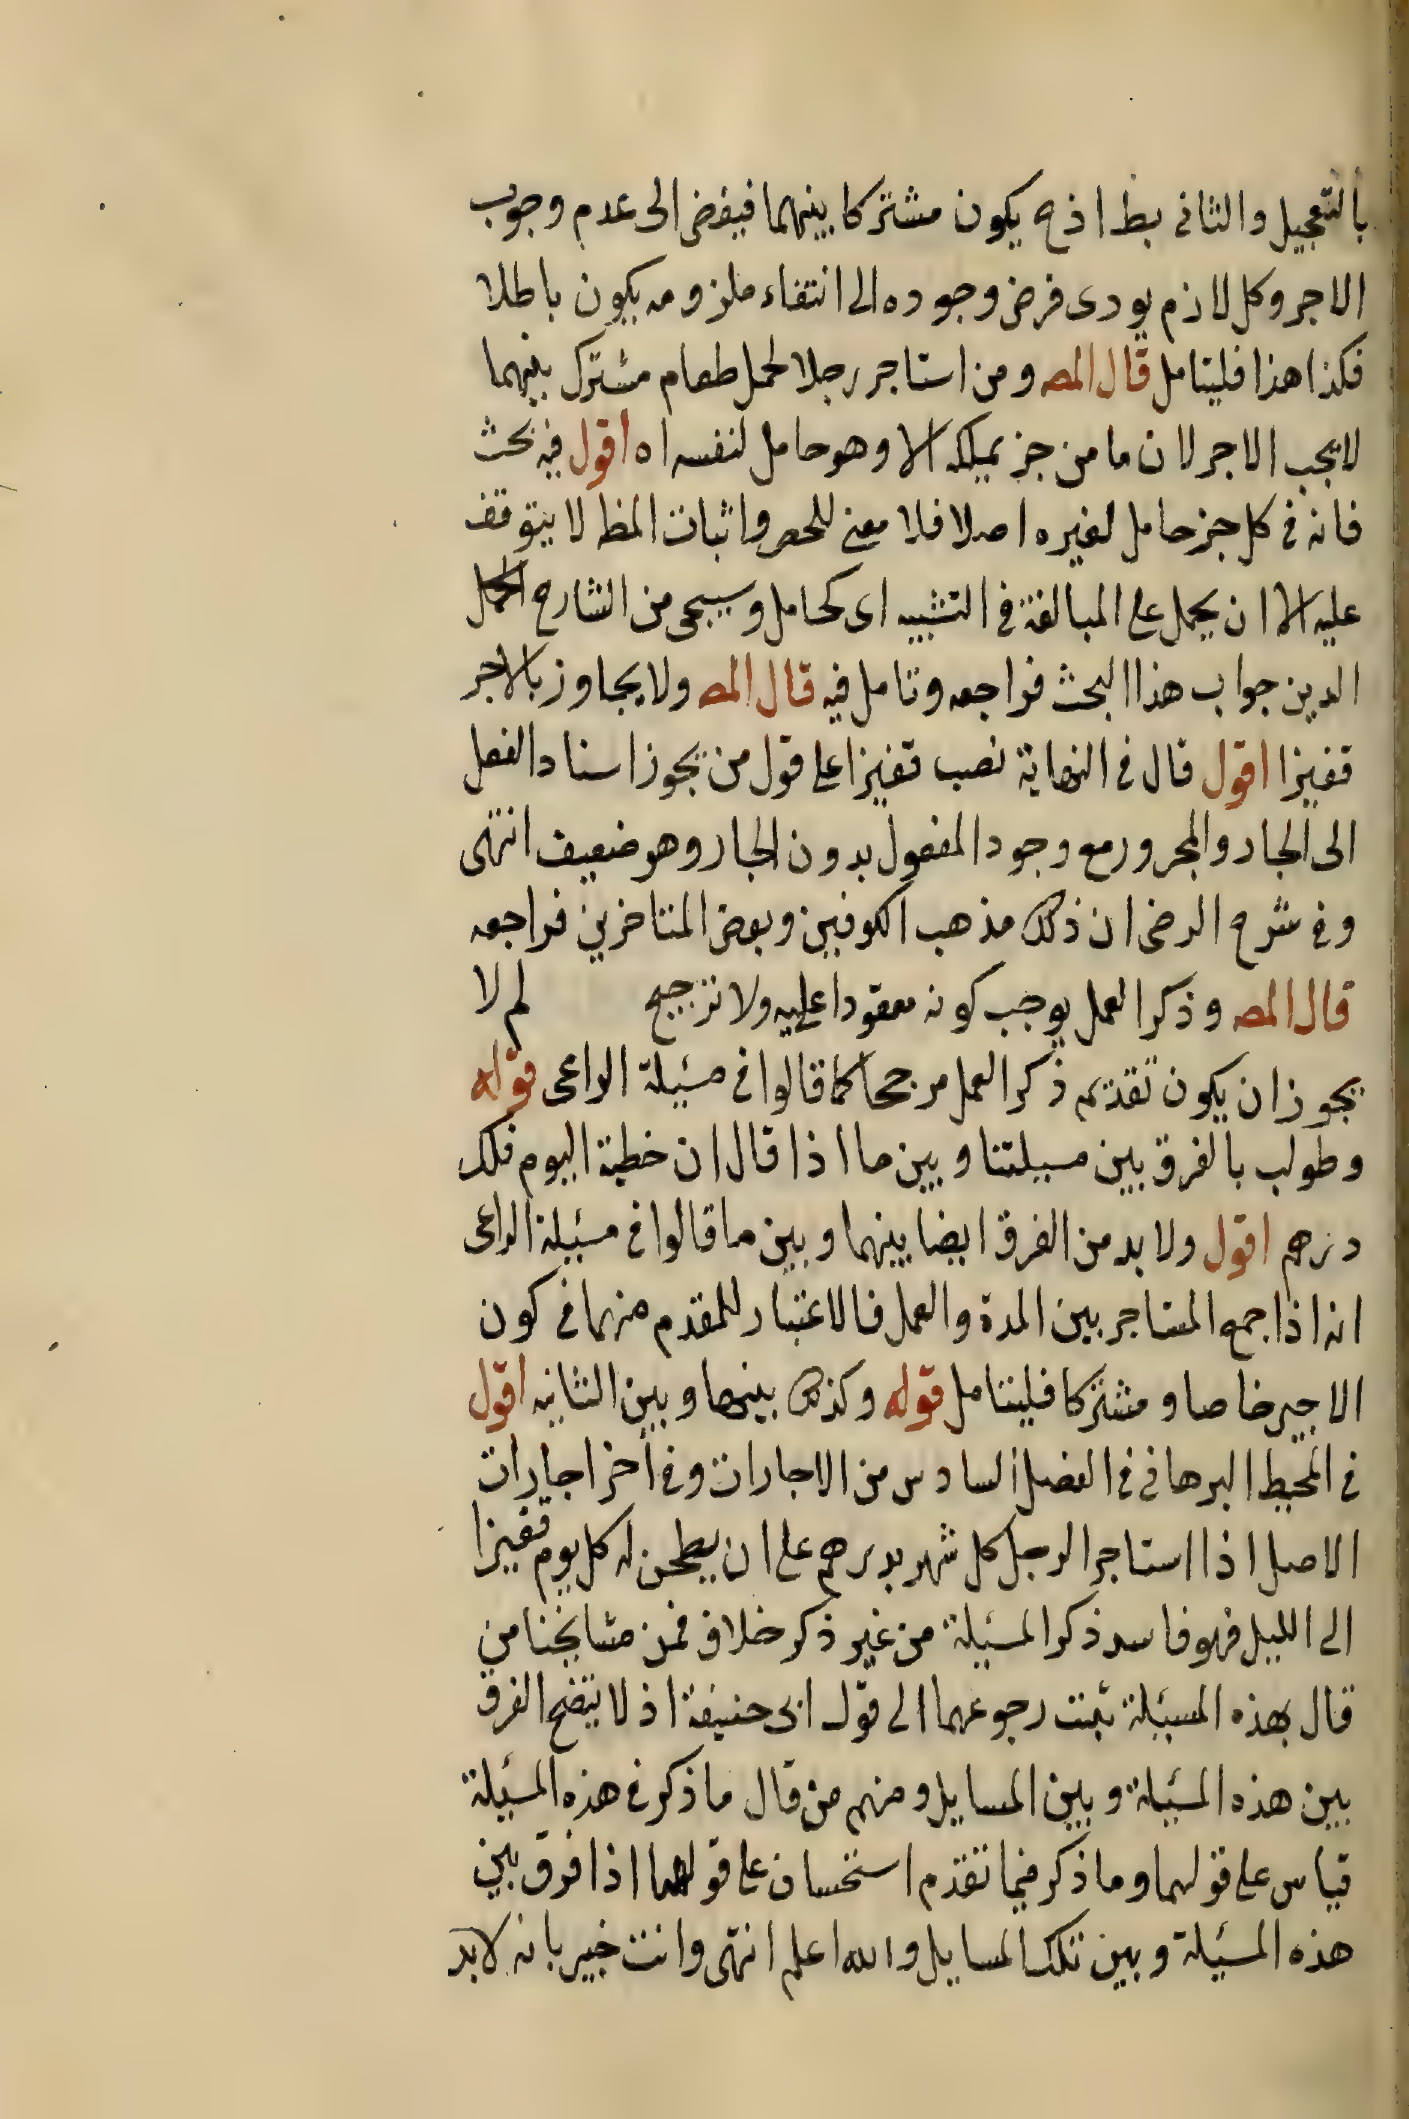 بالتعجيل والثانى بط اذ ح يكون مشتركا بينهما فيفضى الى عدم وجوب
الاجر وكل لازم يودى فرض وجوده الى انتفاء ملزومه يكون باطلا
فكذا هذا فليتامل قال المص ومن استاجر رجلا لحمل طعام مشترك بينهما
لا يجب الاجر لان ما من جز يملكه الا وهو حامل لنفسه اه اقول فيه بحث
فانه فى كل جز حامل لغيره اصلا فلا معنى للحصر واثبات المط لا يتوقف
عليه الا ان يحمل على المبالغة فى التشبيه اى كحامل وسيجى من الشارح اكمل
الدين جواب هذا البحث فراجعه وتامل فيه قال المص ولا يجاوز بالاجر
قفيزا اقول قال فى النهاية نصب قفيزا على قول من يجوز اسناد الفعل
الى الجار والمجرور مع وجود المفعول بدون الجار وهو ضعيف انتهى
وفى شرح الرضى ان ذلك مذهب الكوفيين وبعض المتاخرين فراجعه
قال المص وذكر العمل يوجب كونه معقودا عليه ولا ترجيح لم لا
يجوز ان يكون تقديم ذكر العمل مرجحا كما قالوا فى مسئلة الراعى قوله
وطولب بالفرق بين مسيلتنا وبين ما اذا قال ان خطته اليوم فلك
درهم اقول ولا بد من الفرق ايضا بينهما وبين ما قالوا فى مسئيلة الراعى
انه اذا جمع المستاجر بين المدة والعمل فالاعتبار للمقدم منهما فى كون
الاجير خاصا ومشتركا فليتامل قوله وكذلك بينهما وبين الثانيه اقول
فى المحيط البرهانى فى الفصل السادس من الاجارات وفى اخر اجارات
الاصل اذا استاجر الرجل كل شهر بدرهم على ان يطحن له كل يوم قفيزا
الى الليل فهو فاسد ذكر المسئيلة من غير ذكر خلاف فمن مشايخنا من
قال بهذه المسئيلة يثبت رجوعهما الى قول ابى حنيفة اذ لا يتضح الفرق
بين هذه المسئيلة وبين المسايل ومنهم من قال ما ذكر فى هذه المسئيلة
قياس على قولهما وما ذكر فيما تقدم استحسان على قولهما اذا فرق بين
هذه المسئيلة وبين تلك المسايل والله اعلم انتهى وانت خبير بانه لا بد